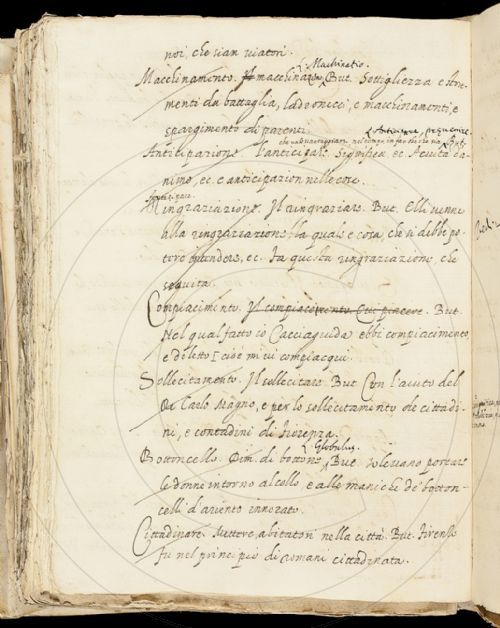 noi, che sian viatori.
Machinatio.
Macchinamento. Il macchinare. But. Sottigliezza e stru-
menti da battaglia, ladronecci, e macchinamenti, e
spargimento di parenti.
Anticipazione. L'anticipare. Significa ec. Acuità d'a-
nimo, ec. e anticipazion nelle cose.
Ringraziazione. Il ringraziare. But. Elli venne
alla ringraziazione la quale è cosa, che si debbe po-
tere ec. Fa questa ringraziazione, che
séguita.
Compiacimento. Il compiacimento. But.
Nel qual fatto io Cacciaguida ebbi compiacimento,
e diletto, cioè mi vi compiacqui.
Sollecitamento. Il sollecitare. But. Con l'aiuto del
Re Carlo Magno, e per lo sollecitamento de cittadi-
ni, e contadini di Firenza.
Globulus.
Bottoncello. Dim. di bottone. But. solevano portare
le donne intorno al collo e alle maniche de' botton-
celli d'ariento innorato.
Cittadinare. Mettere abitatori nella città. But. Firenze
fu nel principio di romani cittadinata.